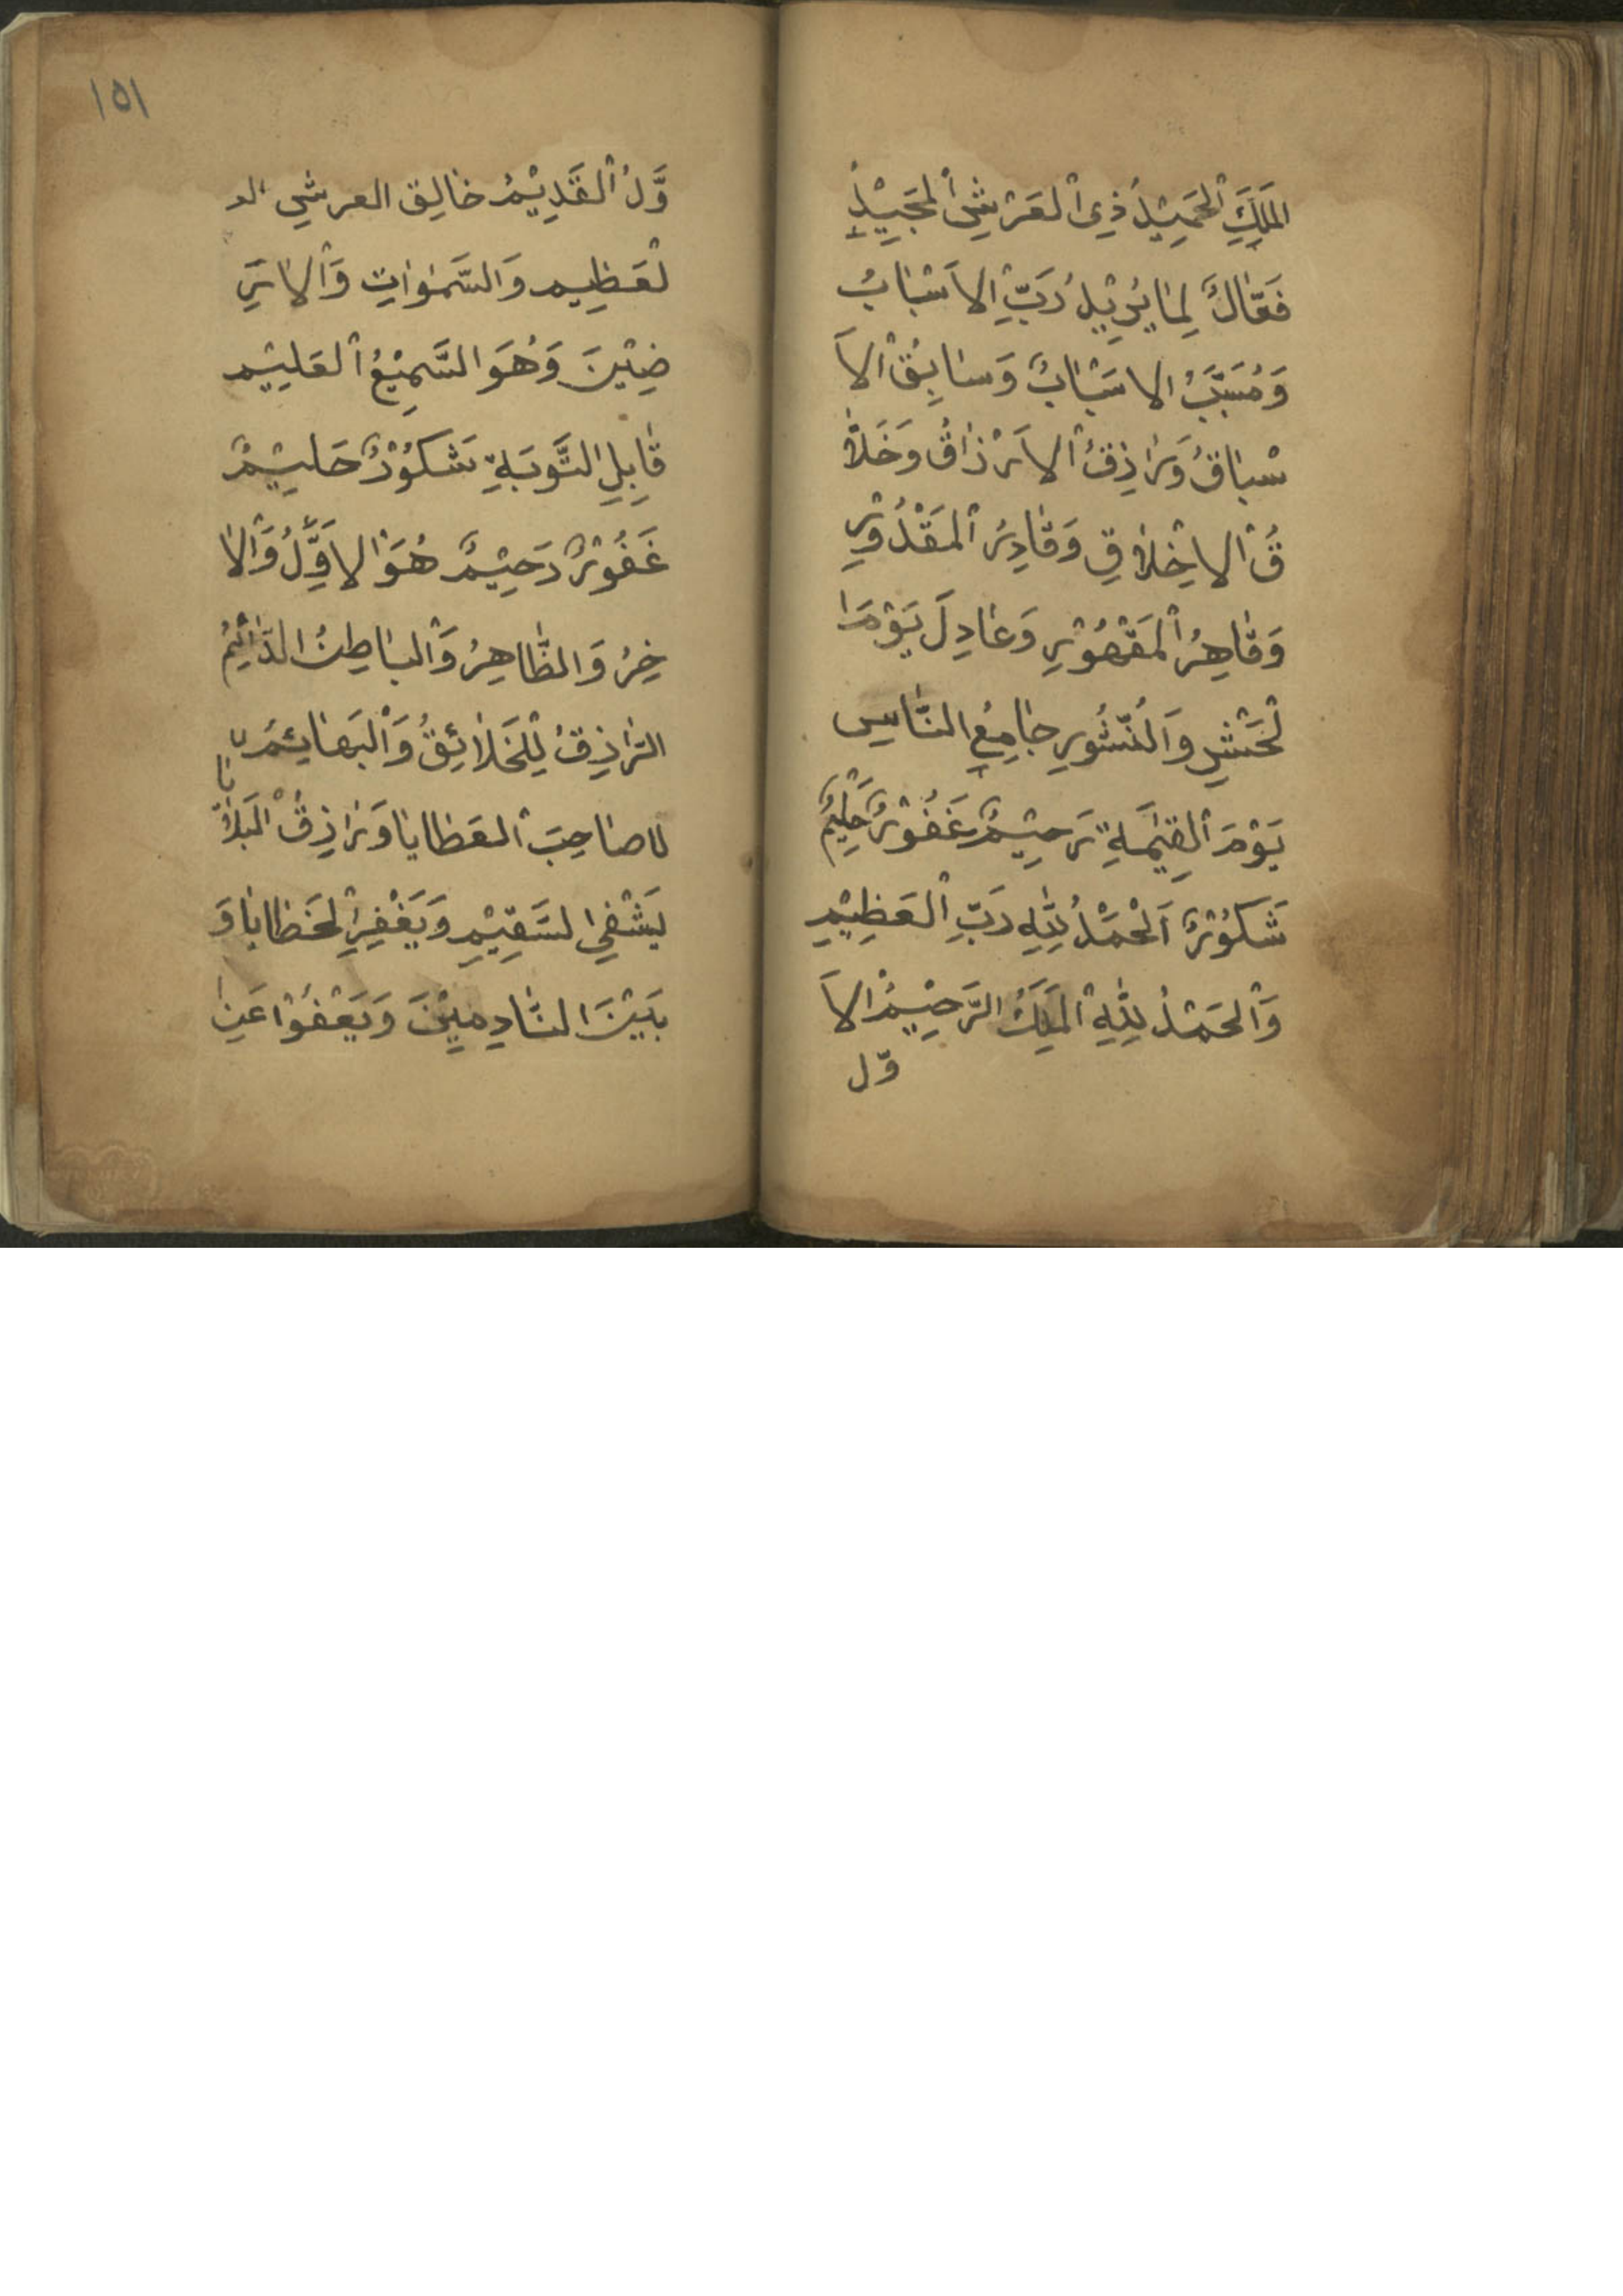 المَلِكَ الْحَمِيْدُ ذِى الْعَرْشِ الْمَجِيْدِ
فَعَّالٌ لِمَا يُرِيْدُ رَبِّ الاَسْبَابُ
وَمُسَبِّبُ الاسَبْابُ وَسَابِقُ الاَ
سْبَاقُ وَرَازِقُ الاَرْزَاقُ وَخَلاَّ
قُ الاخِلَاقِ وَقَادِرُ الْمَقْدُوْرِ
وَقَاهِرُ الْمَقْهُوْرِ وَعَادِلَ يَوْمَ ا
لْحَشْرِ وَالنُّشُورِ جَامِعِ النَّاسِ
يَوْمَ الْقِيٰمَةِ رَحِيْمٌ غَفُوْرٌ حَلِيْمٌ
شَكُوْرٌ اَلْحَمْدُ لِلّٰهِ رَبِّ الْعَظِيْمِ
وَالْحَمْدُ لِلّٰهِ الْمَلِكُ الرَّحِيْمُ الاَ
وّل
١٥١
وَّلُ الْقَدِيْمُ خَالِقِ العرشِ ال
لْعَظِيمِ وَالسَّمٰوَاتِ وَالْاَرَ
ضِيْنَ وَهُوَ السَّمِيْعُ الْعَلِيْم
قَابِلِ التَّوبَةِ شَكُوْرٌ حَلِيْمٌ
غَفُوْرٌ رَحِيْمٌ هُوَ الاَوَّلُ وَالْا
خِرُ وَالظَّاهِرُ وَالْبَاطِنُ الدَّائِمُ
الرَّازِقُ لِلْخَلَائِقُ وَالْبَهَائِمُ
صَاحِبَ الْعَطَايَا وَرَازِقُ الْبَلَا
يَشْفِى السَّقِيْمِ وَيَغْفِرِ الْخَطَايَا وَ
بَيْنَ النَّادِمِيْنَ وَيَعْفُوْا عَنِ